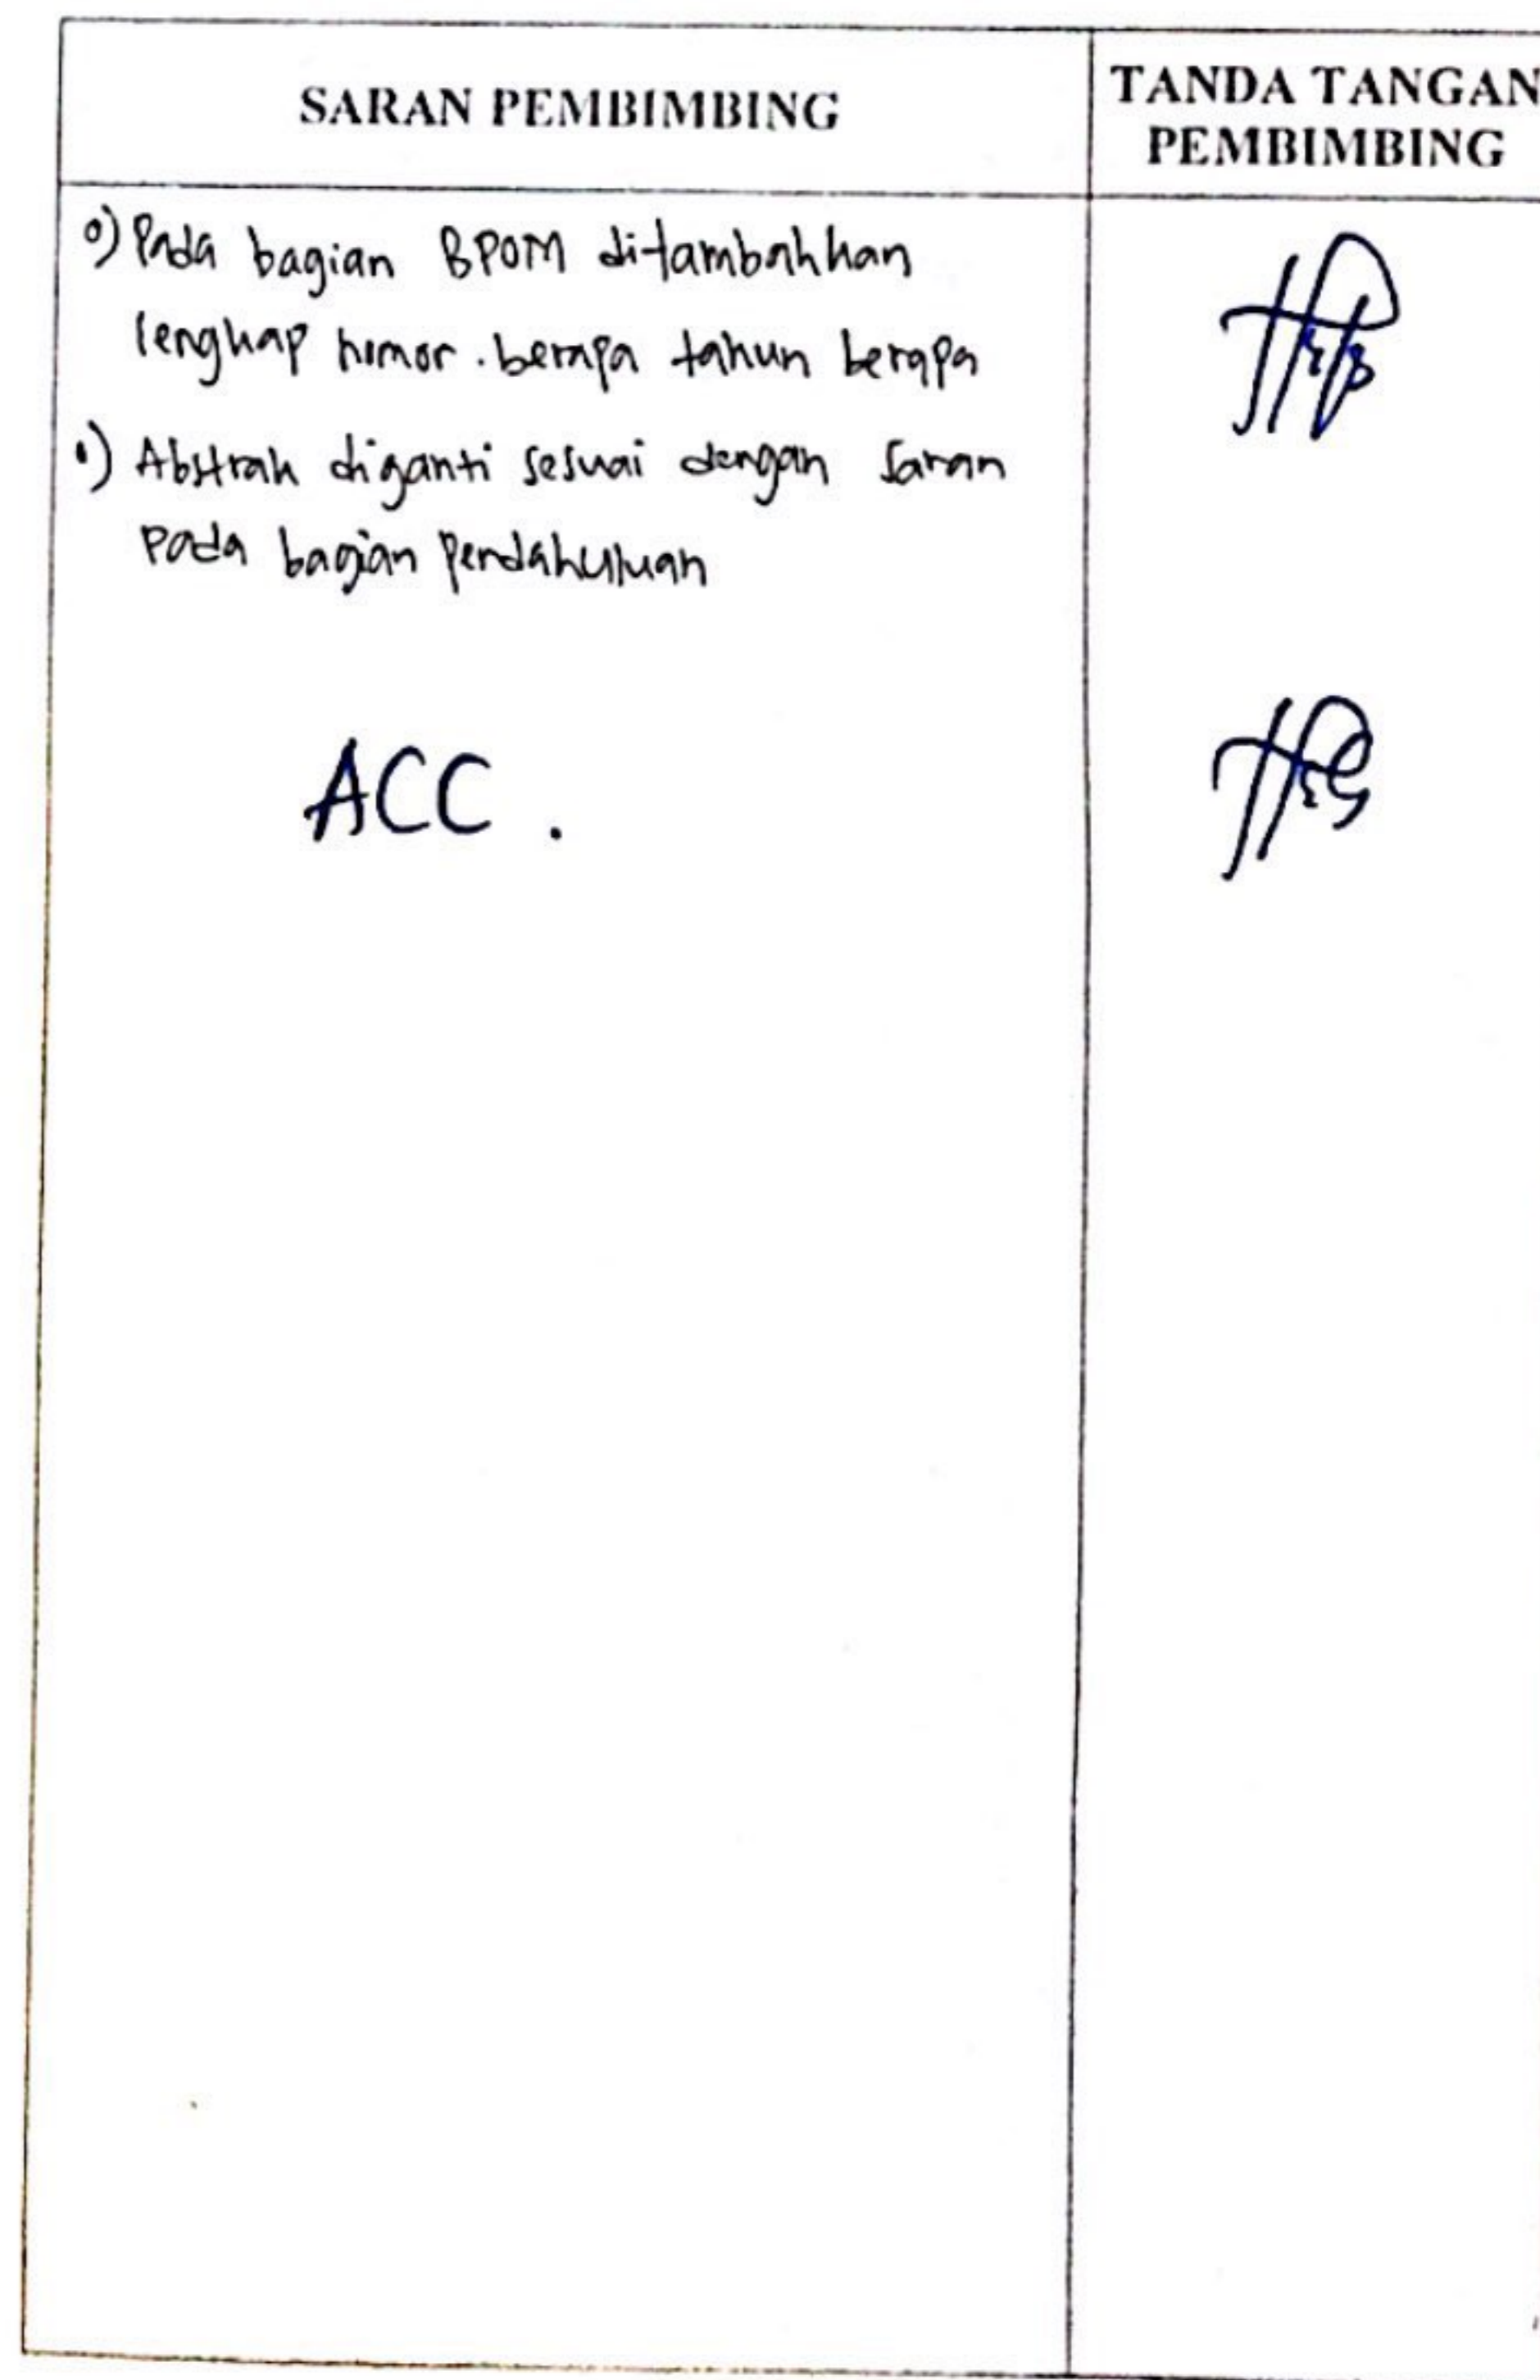 SARAN PEMBIMBING
TANDA TANGAN
PEMBIMBING
o) Pada bagian BPOM ditambahkan
lengkap nomor . berapa tahun berapa
o) Abstrak diganti sesuai dengan saran
pada bagian pendahuluan
ACC .